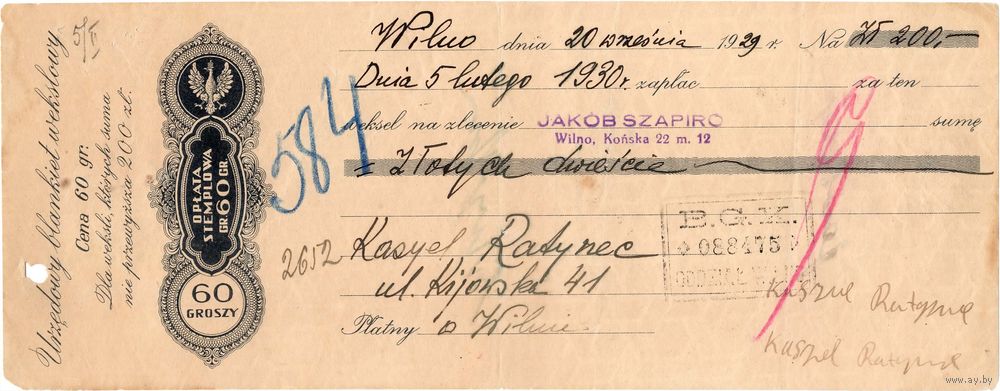 Urzędowy blankiet wekslowy
Cena 60 gr.
Dla weksli, których suma
nie przewyższa 200 zł.
OPŁATA
STEMPLOWA
GR. 60 GR.
60
GROSZY
584
2652
Wilno dnia 20 września 1929 r. Na Zł 200,-
Dnia 5 lutego 1930 r. zapłac za ten
weksel na zlecenie JAKÓB SZAPIRO sumę
Wilno, Końska 22 m. 12
Złotych dwieście
B.G.K.
088475
ODDZIAŁ
Kasyel Ratynec
ul. Kijowska 41
Płatny w Wilnie
www.ay.by